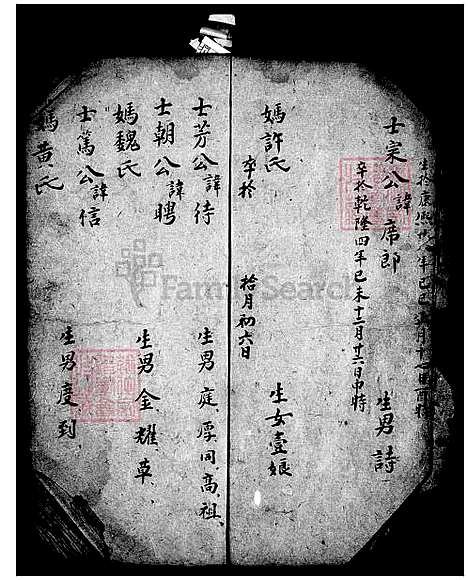 士宗公諱席郎 生男詩
生於康熙 年己巳 月十 日酉時
卒於乾隆四年己未十二月廿六日申時
媽許氏 生女壹娘
卒於 拾月初六日
士芳公諱待 生男庭厚同高祖
士朝公諱聘 生男金耀草
媽魏氏
士篤公諱信 生男度到
媽黃氏
FamilySearch